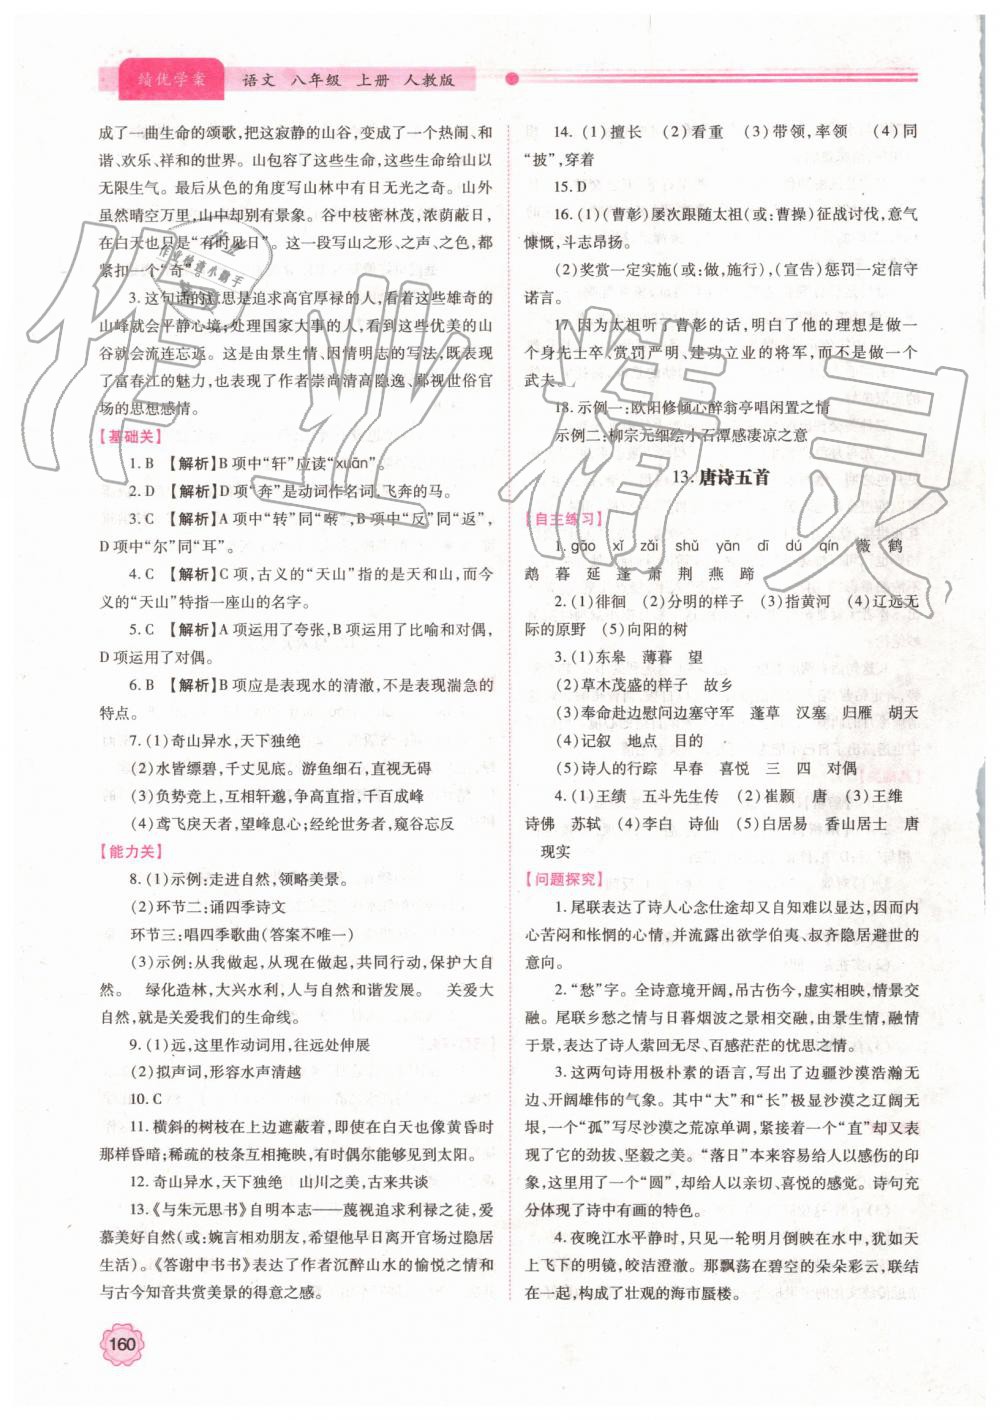 绩优学案 语文 八年级 上册 人教版
成了一曲生命的颂歌,把这寂静的山谷,变成了一个热闹、和
谐、欢乐、祥和的世界。山包容了这些生命,这些生命给山以
无限生气。最后从色的角度写山林中有日无光之奇。山外
虽然晴空万里,山中却别有景象。谷中枝密林茂,浓荫蔽日,
在白天也只是“有时见日”。这一段写山之形、之声、之色,都
紧扣一个“奇
3. 这句话的意思是追求高官厚禄的人,看着这些雄奇的
山峰就会平静心境;处理国家大事的人,看到这些优美的山
谷就会流连忘返。这是由景生情、因情明志的写法,既表现
了富春江的魅力,也表现了作者崇尚清高隐逸、鄙视世俗官
场的思想感情。
【基础关】
1. B 【解析】B项中“轩”应读“xuān”。
2. D 【解析】D项“奔”是动词作名词,飞奔的马。
3. C 【解析】A项中“转”同“啭”,B项中“反”同“返”,
D项中“尔”同“耳”。
4. C 【解析】C项,古义的“天山”指的是天和山,而今
义的“天山”特指一座山的名字。
5. C 【解析】A项运用了夸张,B项运用了比喻和对偶,
D项运用了对偶。
6. B 【解析】B项应是表现水的清澈,不是表现湍急的
特点。
7. (1)奇山异水,天下独绝
(2)水皆缥碧,千丈见底。游鱼细石,直视无碍
(3)负势竞上,互相轩邈,争高直指,千百成峰
(4)鸢飞戾天者,望峰息心;经纶世务者,窥谷忘反
【能力关】
8. (1)示例:走进自然,领略美景。
(2)环节二:诵四季诗文
环节三:唱四季歌曲(答案不唯一)
(3)示例:从我做起,从现在做起,共同行动,保护大自
然。 绿化造林,大兴水利,人与自然和谐发展。 关爱大
自然,就是关爱我们的生命线。
9. (1)远,这里作动词用,往远处伸展
(2)拟声词,形容水声清越
10. C
11. 横斜的树枝在上边遮蔽着,即使在白天也像黄昏时
那样昏暗;稀疏的枝条互相掩映,有时偶尔能见到太阳。
12. 奇山异水,天下独绝 山川之美,古来共谈
13. 《与朱元思书》自明本志——蔑视追求利禄之徒,爱
慕美好自然(或:婉言相劝朋友,希望他早日离开官场过隐居
生活)。《答谢中书书》表达了作者沉醉山水的愉悦之情和
与古今知音共赏美景的得意之感。
160
14. (1)擅长 (2)看重 (3)带领,率领 (4)同
“披”,穿着
15. D
16. (1)(曹彰)屡次跟随太祖(或:曹操)征战讨伐,意气
慷慨,斗志昂扬。
(2)奖赏一定实施(或:做,施行),(宣告)惩罚一定信守
诺言。
17. 因为太祖听了曹彰的话,明白了他的理想是做一
个身先士卒、赏罚严明、建功立业的将军,而不是做一个
武夫。
18. 示例一:欧阳修倾心醉翁亭唱闲置之情
示例二:柳宗元细绘小石潭感凄凉之意
13. 唐诗五首
【自主练习】
1. gāo xǐ zǎi shǔ yān dī dú qín 薇 鹤
鹉 暮 延 蓬 萧 荆 燕 蹄
2. (1)徘徊 (2)分明的样子 (3)指黄河 (4)辽远无
际的原野 (5)向阳的树
3. (1)东皋 薄暮 望
(2)草木茂盛的样子 故乡
(3)奉命赴边慰问边塞守军 蓬草 汉塞 归雁 胡天
(4)记叙 地点 目的
(5)诗人的行踪 早春 喜悦 三 四 对偶
4. (1)王绩 五斗先生传 (2)崔颢 唐 (3)王维
诗佛 苏轼 (4)李白 诗仙 (5)白居易 香山居士 唐
现实
【问题探究】
1. 尾联表达了诗人心念仕途却又自知难以显达,因而内
心苦闷和怅惘的心情,并流露出欲学伯夷、叔齐隐居避世的
意向。
2. “愁”字。全诗意境开阔,吊古伤今,虚实相映,情景交
融。尾联乡愁之情与日暮烟波之景相交融,由景生情,融情
于景,表达了诗人萦回无尽、百感茫茫的忧思之情。
3. 这两句诗用极朴素的语言,写出了边疆沙漠浩瀚无
边、开阔雄伟的气象。其中“大”和“长”极显沙漠之辽阔无
垠,一个“孤”写尽沙漠之荒凉单调,紧接着一个“直”却又表
现了它的劲拔、坚毅之美。“落日”本来容易给人以感伤的印
象,这里用了一个“圆”,却给人以亲切、喜悦的感觉。诗句充
分体现了诗中有画的特色。
4. 夜晚江水平静时,只见一轮明月倒映在水中,犹如天
上飞下的明镜,皎洁澄澈。那飘荡在碧空的朵朵彩云,联结
在一起,构成了壮观的海市蜃楼。
作业精灵